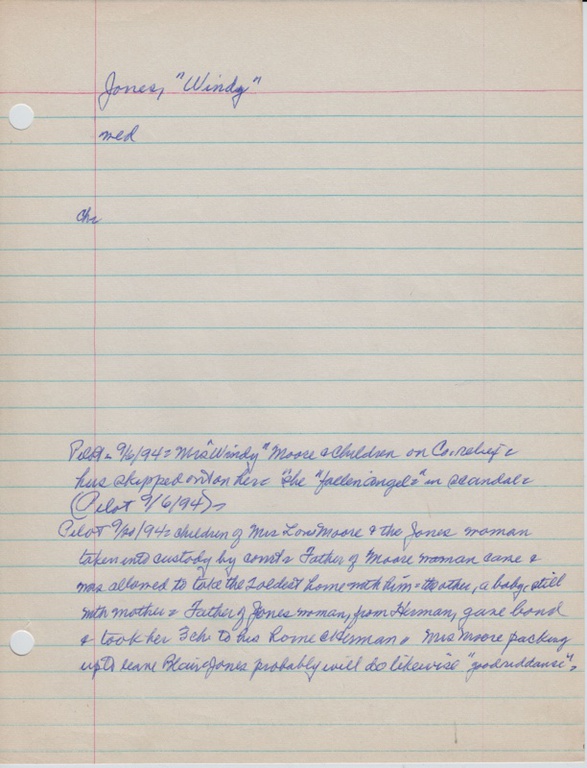 Jones, "Windy"
med
ch
Pilot = 9/6/94 = Mrs "Windy" Moore & children on Co. relief &
has skipped out on her = The "fallen angels" in scandal =
(Pilot 9/6/94) =
Pilot 9/20/94 = children of Mrs Moore & the Jones woman
taken into custody by court = Father of Moore woman came &
was allowed to take the 2 oldest home with him = the other, a baby, still
with mother = Father of Jones woman, from Herman, gave bond
& took her 3 ch to his home @ Herman = Mrs Moore packing
up to leave Blair & Jones probably will do likewise "good riddance" =